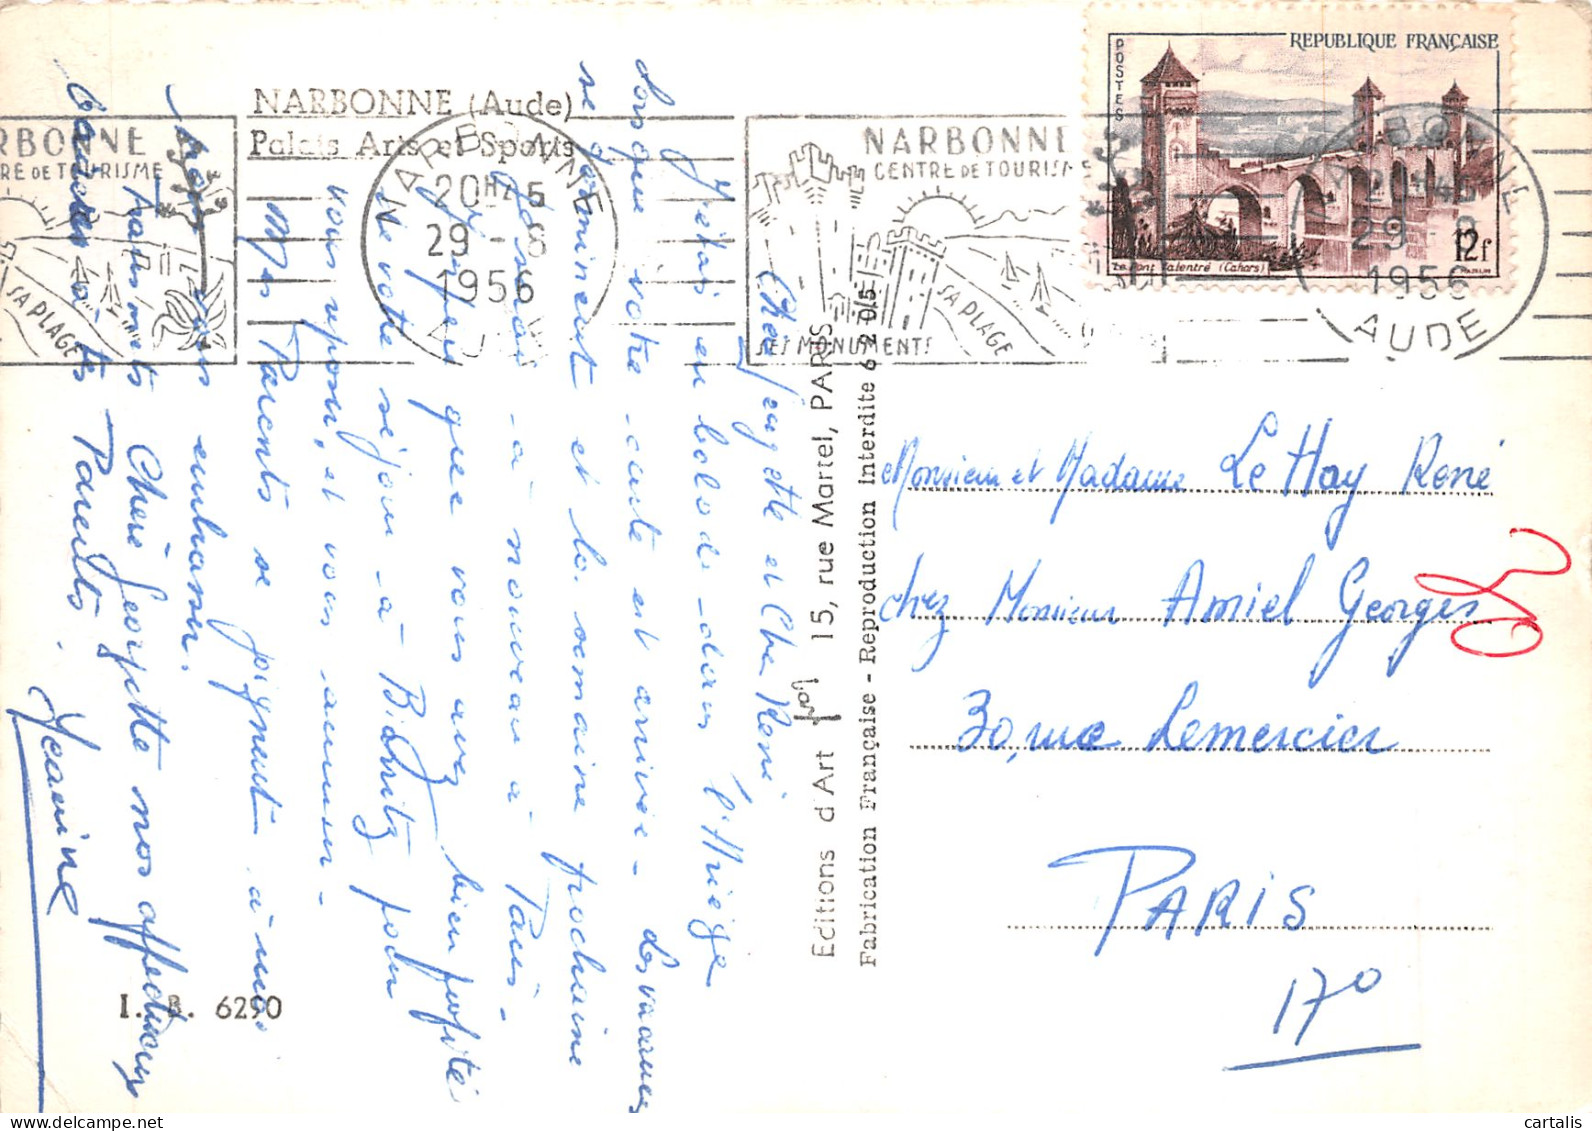 NARBONNE (Aude)
Palais Arts et Sports
RBONNE
RE DE TOURISME
SA PLAGE
NARBONNE
20H45
29 - 8
1956
AUDE
NARBONNE
CENTRE DE TOURISME
SA PLAGE
SES MONUMENTS
REPUBLIQUE FRANÇAISE
POSTES
Le Pont Valentré (Cahors)
12f
NARBONNE
20H45
29 - 8
1956
AUDE
Chère Georgette et Cher René
J'étais en balade dans l'Ariège
lorsque votre carte est arrivée - Les vacances
se terminent et la semaine prochaine
je serais à nouveau à Paris.
J'espère que vous avez bien profité
de votre séjour à Biarritz pour
vous reposer, et vous amuser -
Mes Parents se joignent à moi
pour vous embrasser.
Transmets Chère Georgette nos affectueux
baisers à tes Parents.
Jeanine
I. B. 6290
Editions d'Art 15, rue Martel, PARIS
Fabrication Française - Reproduction Interdite 6 205
Monsieur et Madame Le Hay René
chez Monsieur Amiel Georges
30, rue Lemercier
PARIS
17º
cartalis